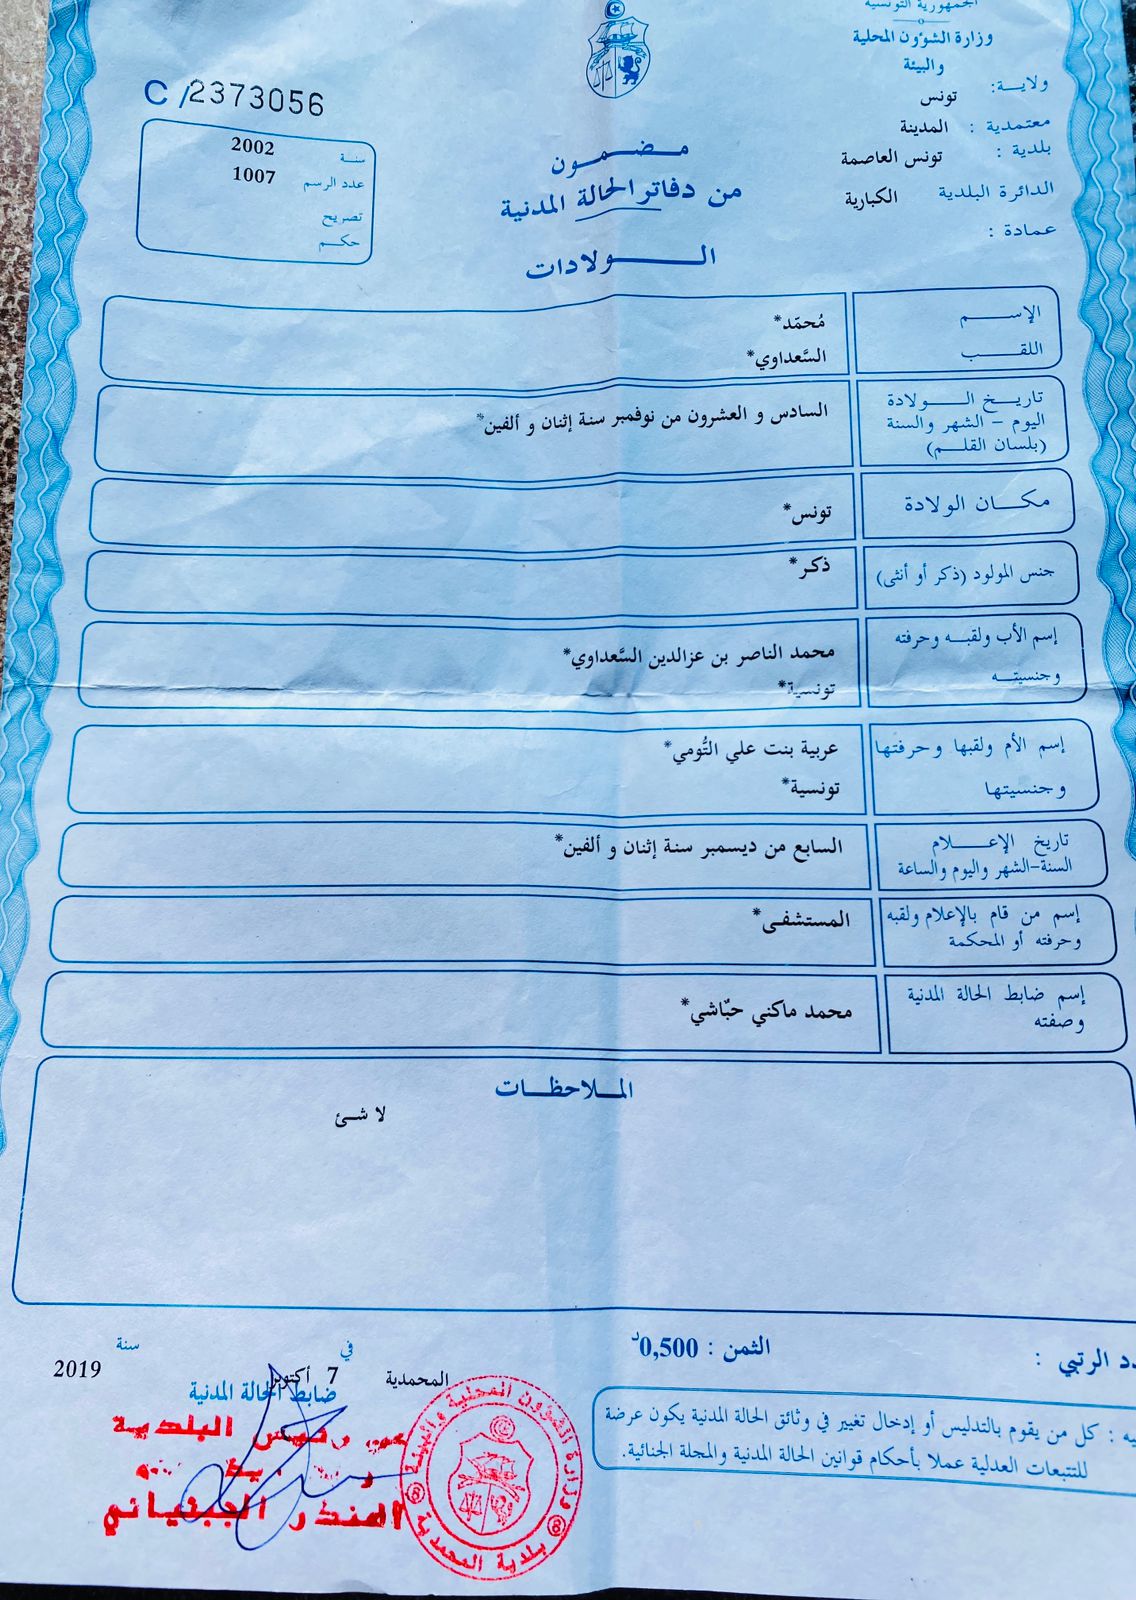 الجمهورية التونسية
وزارة الشؤون المحلية
والبيئة
ولايـة: تونس
معتمدية : المدينة
بلدية : تونس العاصمة
الدائرة البلدية الكبارية
عمادة :
C/2373056
سنة 2002
عدد الرسم 1007
تصريح
حكم
مضمون
من دفاتر الحالة المدنية
الولادات
الإسم مُحمّد*
اللقب السَّعداوي*
تاريخ الولادة
اليوم - الشهر والسنة
(بلسان القلم)
السادس و العشرون من نوفمبر سنة إثنان و ألفين*
مكان الولادة تونس*
جنس المولود (ذكر أو أنثى) ذكر*
إسم الأب ولقبه وحرفته محمد الناصر بن عزالدين السَّعداوي*
وجنسيته تونسية*
إسم الأم ولقبها وحرفتها عربية بنت علي التُّومي*
وجنسيتها تونسية*
تاريخ الإعلام
السنة-الشهر واليوم والساعة
السابع من ديسمبر سنة إثنان و ألفين*
إسم من قام بالإعلام ولقبه
وحرفته أو المحكمة
المستشفى*
إسم ضابط الحالة المدنية
وصفته
محمد ماكني حبّاشي*
الملاحظات
لا شئ
الرتبي :
الثمن : 0,500د
: كل من يقوم بالتدليس أو إدخال تغيير في وثائق الحالة المدنية يكون عرضة
للتتبعات العدلية عملا بأحكام قوانين الحالة المدنية والمجلة الجنائية.
المحمدية في 7 أكتوبر سنة 2019
ضابط الحالة المدنية
عن رئيس البلدية
المنذر الجبنياني
وزارة الشؤون المحلية والبيئة
بلدية المحمدية